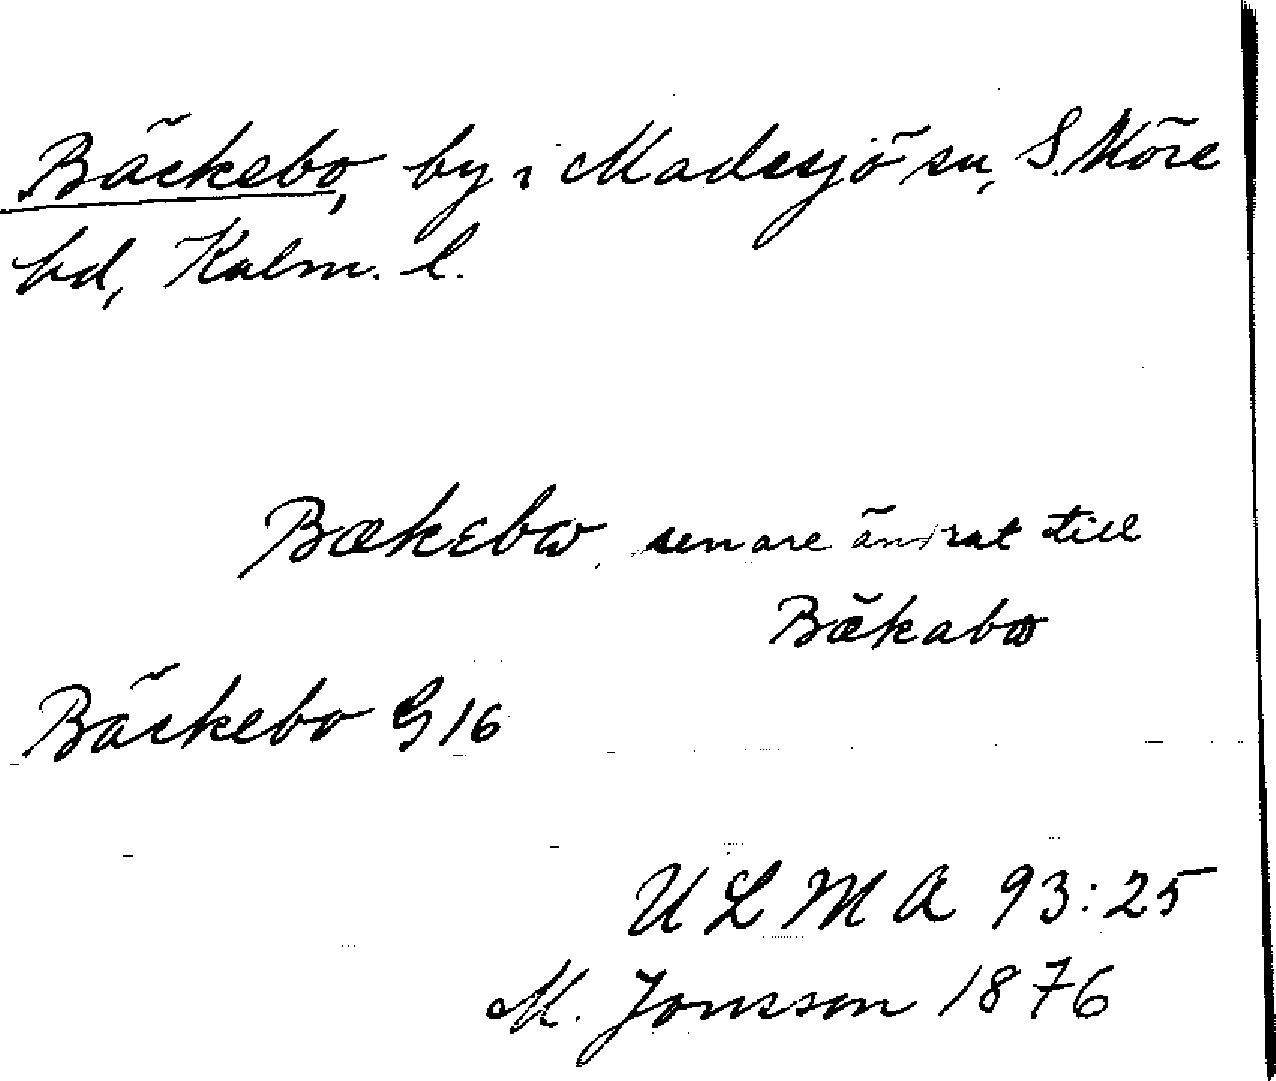 Bäckebo, by i Madesjö sn, S. Möre
hd, Kalm. l.
Bækebω, senare ändrat till
Bækabω
Bäckebo G 16
ULMA 93:25
M. Jonsson 1876